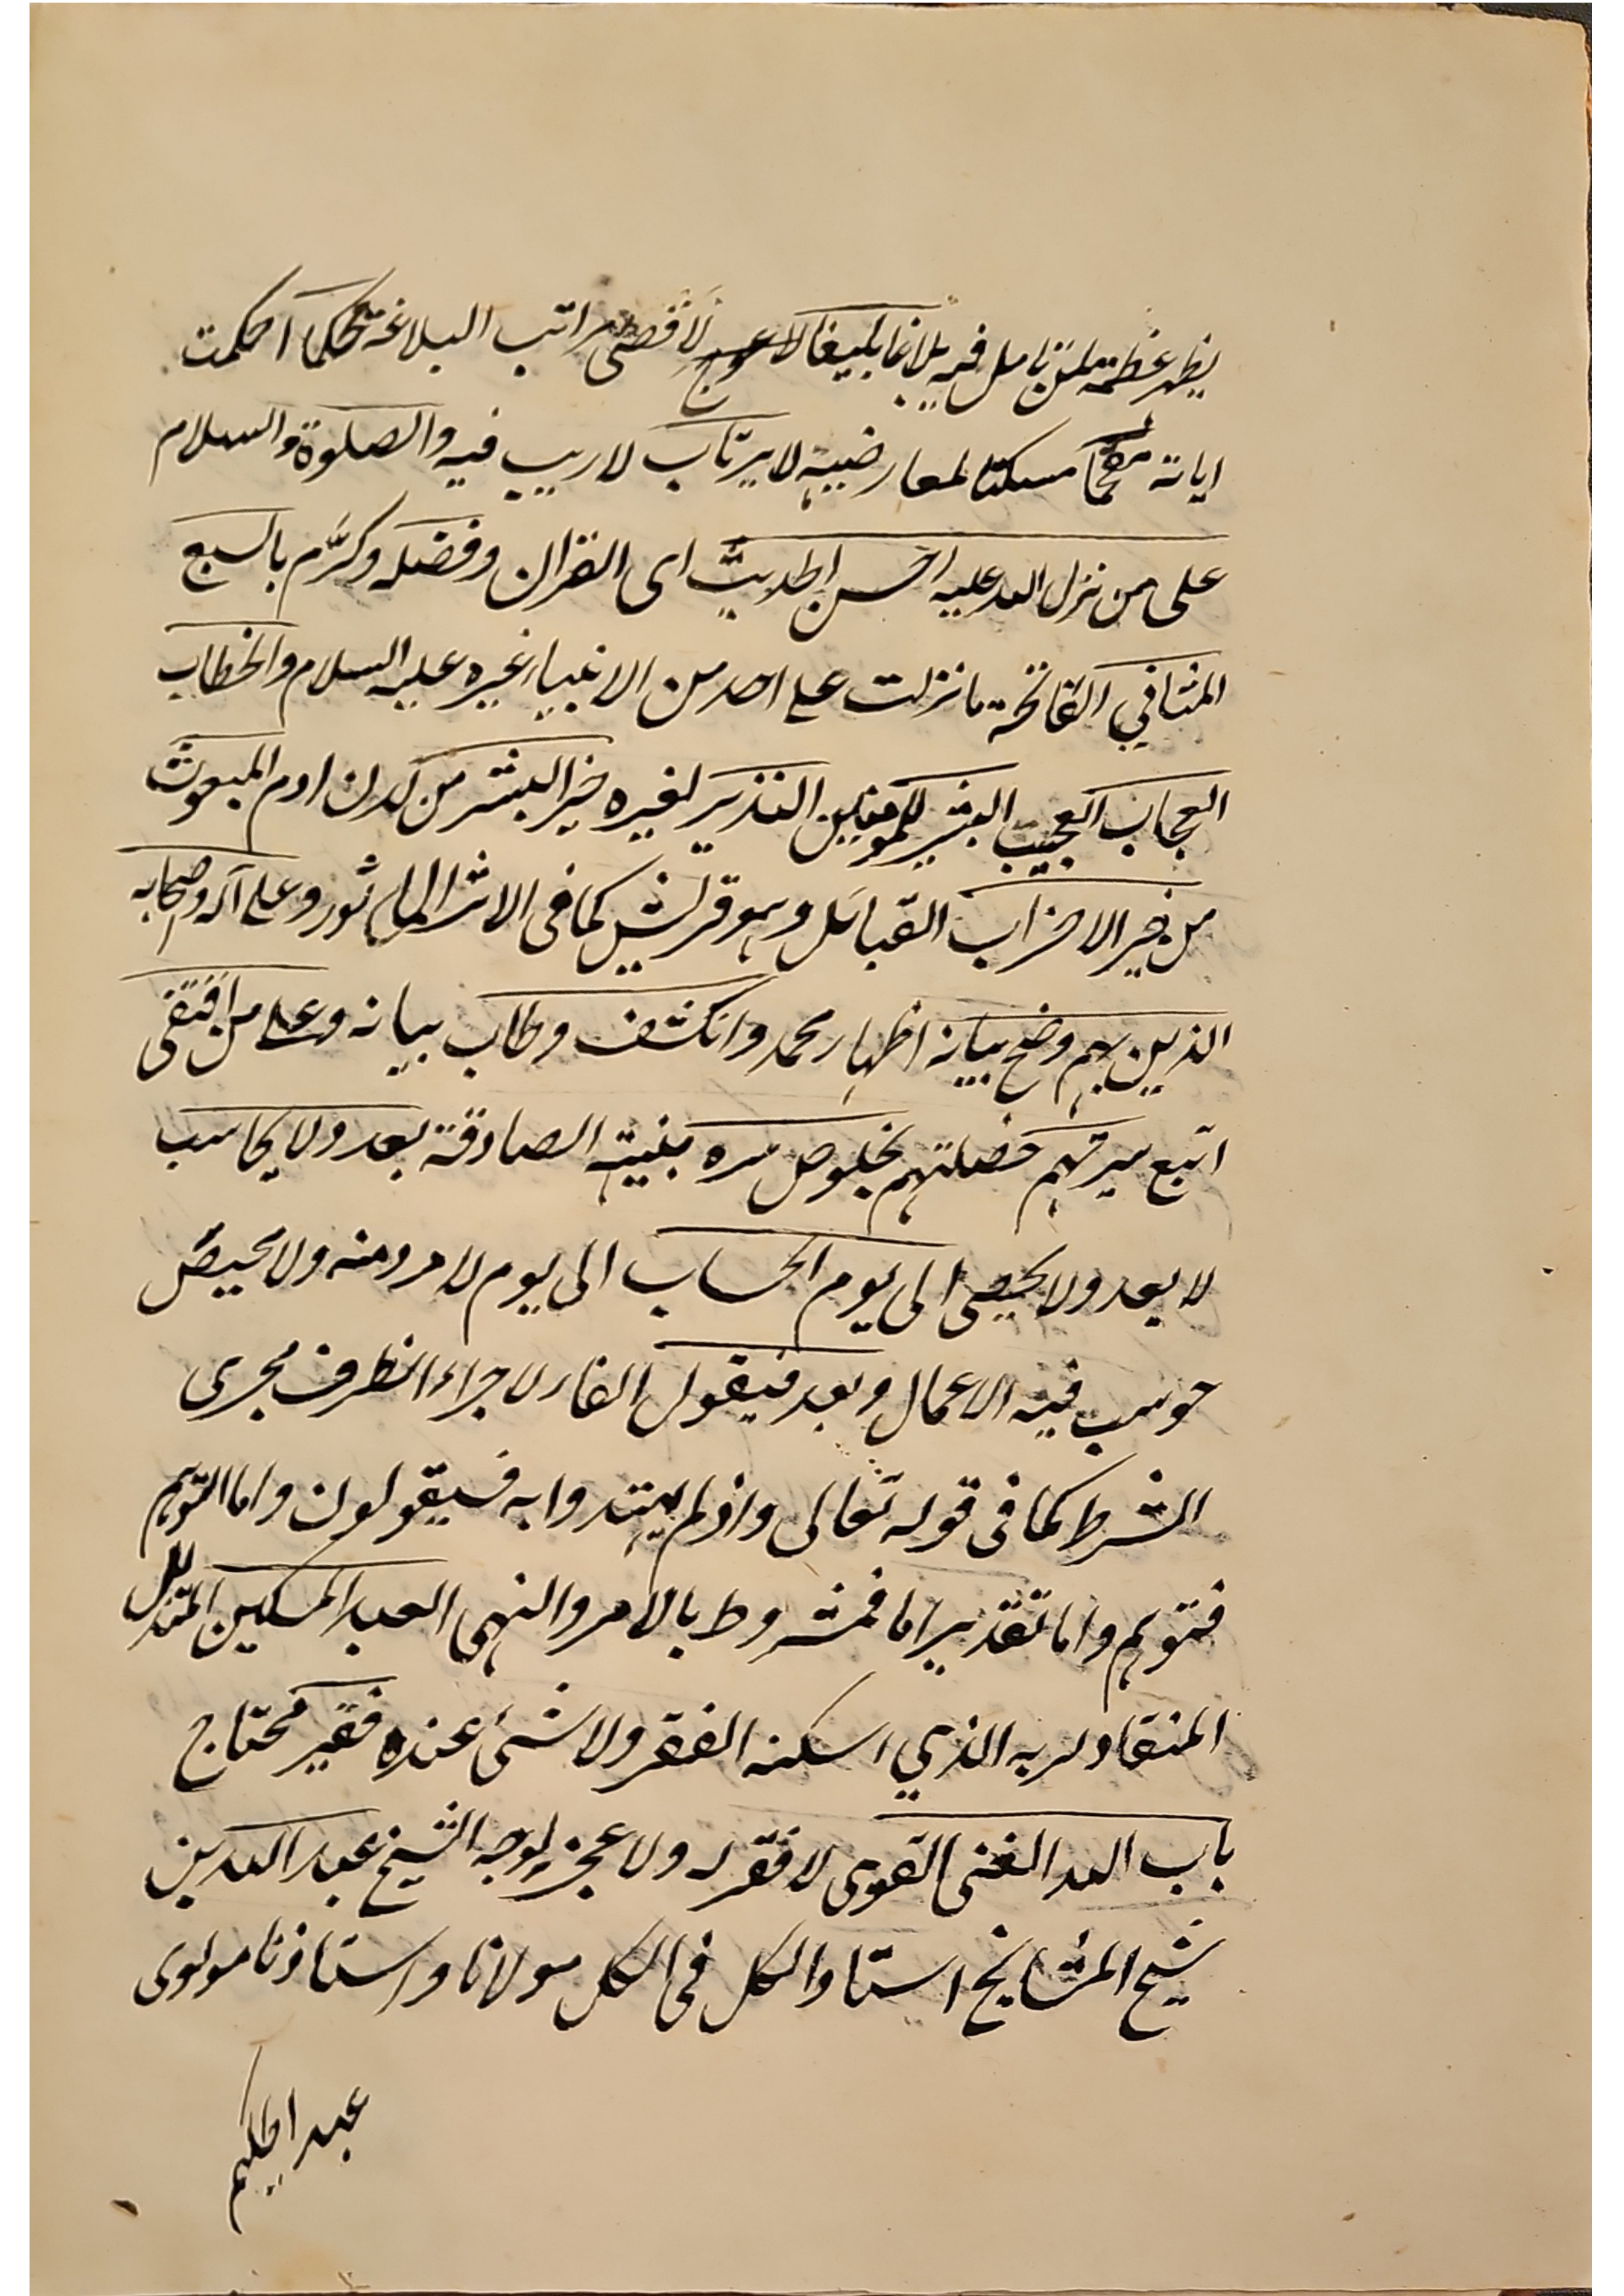 يظهر عظمته لمن تامل فيه بلاغا بليغا لاقصى مراتب البلاغة محكما احكمت
اياته مفحما مسكتا لمعارضيه لا يرتاب لا ريب فيه والصلوة والسلام
على من نزل الله عليه احسن الحديث اى القران وفضله وكرّم بالسبع
المثاني الفاتحة ما نزلت على احد من الانبياء غيره عليه السلام والخطاب
العجاب العجيب البشير للمومنين النذير لغيره خير البشر من لدن ادم المبعوث
من خير الاحزاب القبائل وهو قريش كما فى الاثر الماثور وعلى آله وصحابه
الذين بهم وضح بيانه اظهار محمد وانكشف وطاب بيانه وعلى من اقتفى
اتبع سيرتهم خصلتهم بخلوص سره بنيته الصادقة بعد ولا يحاسب
لا يعد ولا يحصى الى يوم الحساب الى يوم لا مرد منه ولا محيص
حوسب فيه الاعمال وبعد فيقول الفاء لاجراء الظرف مجرى
الشرط كما فى قوله تعالى واذ لم يهتدوا به فسيقولون واما التوهم
فتوهم واما تقدير اما فمشروط بالامر والنهى العبد المسكين المتذلل
المنقاد لربه الذي اسكنه الفقر ولا شئ عنده فقير محتاج
باب الله الغنى القوى لا فقر له ولا عجز لوجه الشيخ عبد الله بن
شيخ المشايخ استاد الكل فى الكل مولانا واستاذنا مولوى
عبد الحليم